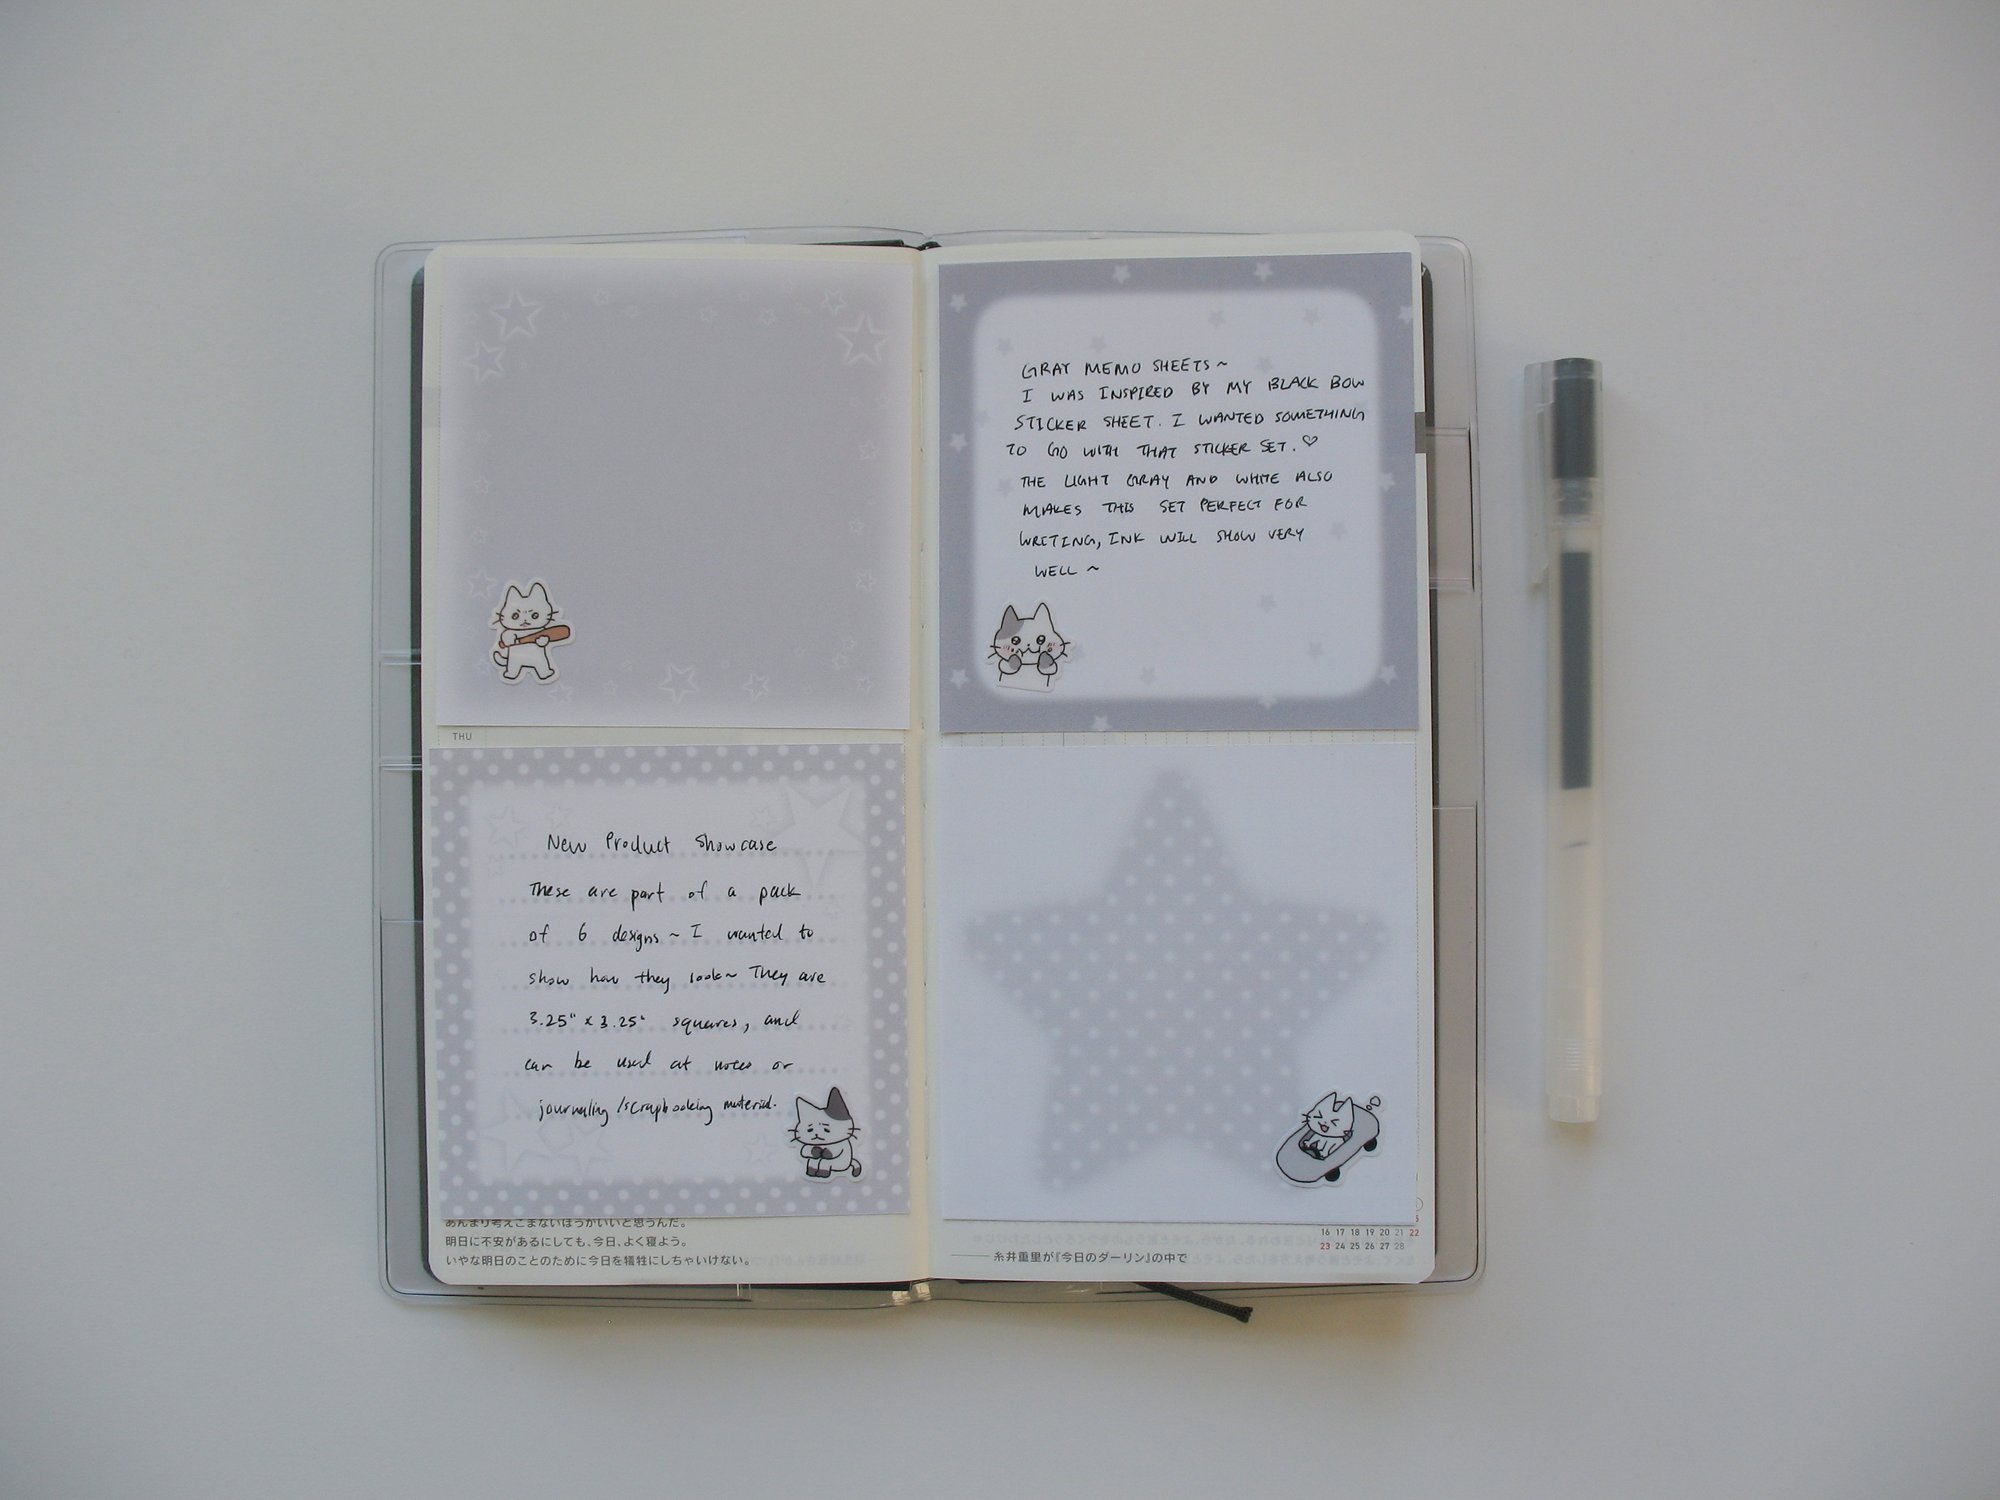 GRAY MEMO SHEETS ~
I WAS INSPIRED BY MY BLACK BOW
STICKER SHEET. I WANTED SOMETHING
TO GO WITH THAT STICKER SET. ♡
THE LIGHT GRAY AND WHITE ALSO
MAKES THIS SET PERFECT FOR
WRITING, INK WILL SHOW VERY
WELL ~
THU
New Product Showcase
These are part of a pack
of 6 designs ~ I wanted to
show how they look~ They are
3.25" x 3.25" squares, and
can be used at notes or
journaling /scrapbooking material.
あんまり考えこまないほうがいいと思うんだ。
明日に不安があるにしても、今日、よく寝よう。
いやな明日のことのために今日を犠牲にしちゃいけない。
糸井重里が『今日のダーリン』の中で
16 17 18 19 20 21 22
23 24 25 26 27 28